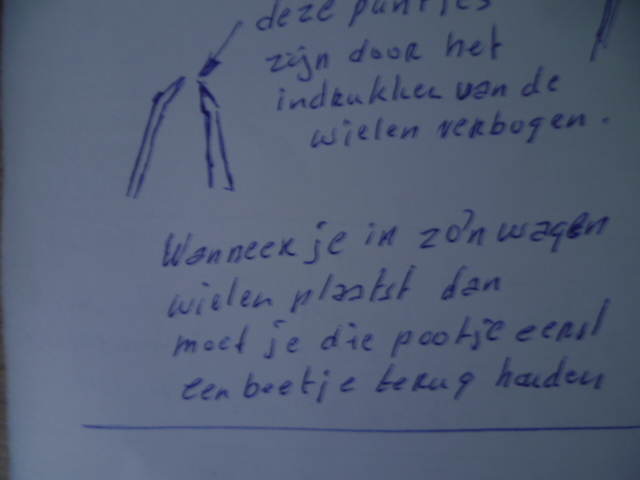 deze puntjes
zijn door het
indrukken van de
wielen verbogen.
Wanneer je in zo'n wagen
wielen plaatst dan
moet je die pootje eerst
een beetje terug houden